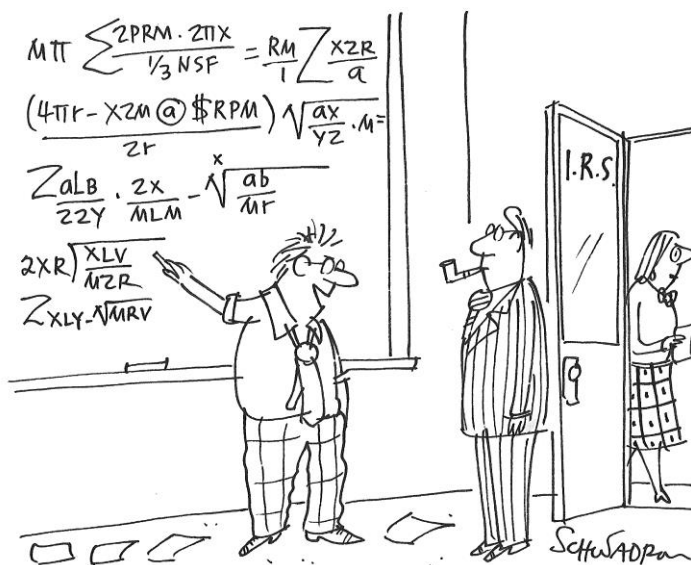 MΠ Σ 2PRM · 2ΠX / 1/3 NSF = RM / 1 Σ X2R / a
(4Πr - X2M @ $RPM) / 2r √ aX / YZ · M =
Σ aLB / 22Y · 2X / MLM - x√ ab / Mr
2XR) XLV / MZR
Σ XLY - √MRV
I.R.S.
SCHWADRON